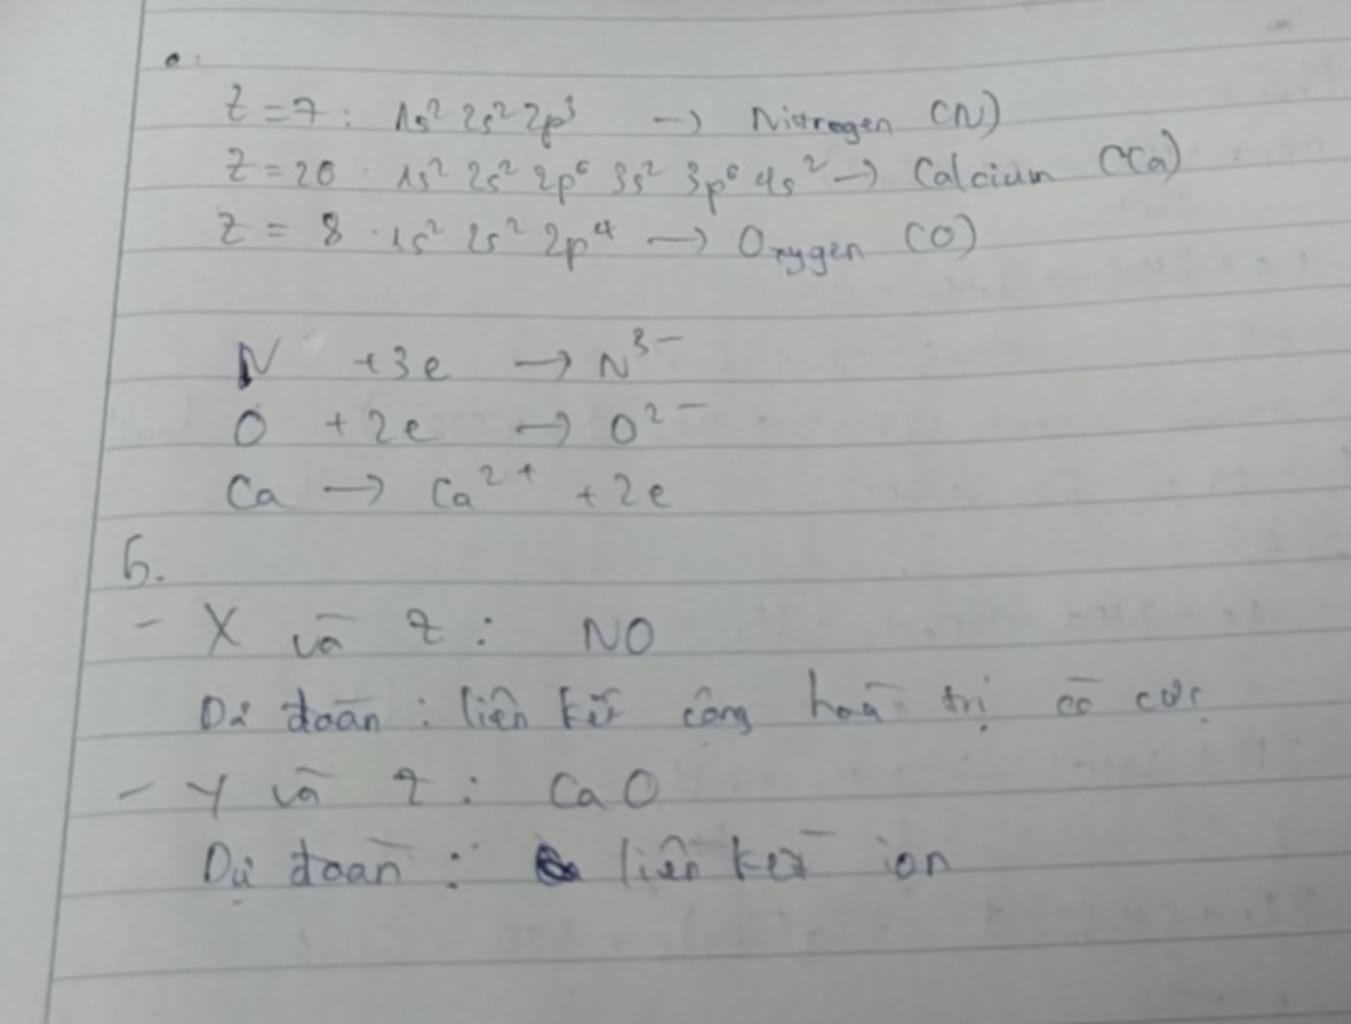 Z = 7 : 1s² 2s² 2p³ → Nitrogen (N)
Z = 20 . 1s² 2s² 2p⁶ 3s² 3p⁶ 4s² → Calcium (Ca)
Z = 8 . 1s² 2s² 2p⁴ → Oxygen (O)
N +3e → N³⁻
O +2e → O²⁻
Ca → Ca²⁺ +2e
b.
- X và Z : NO
Dự đoán : liên kết cộng hoá trị có cực
- Y và Z : CaO
Dự đoán : liên kết ion